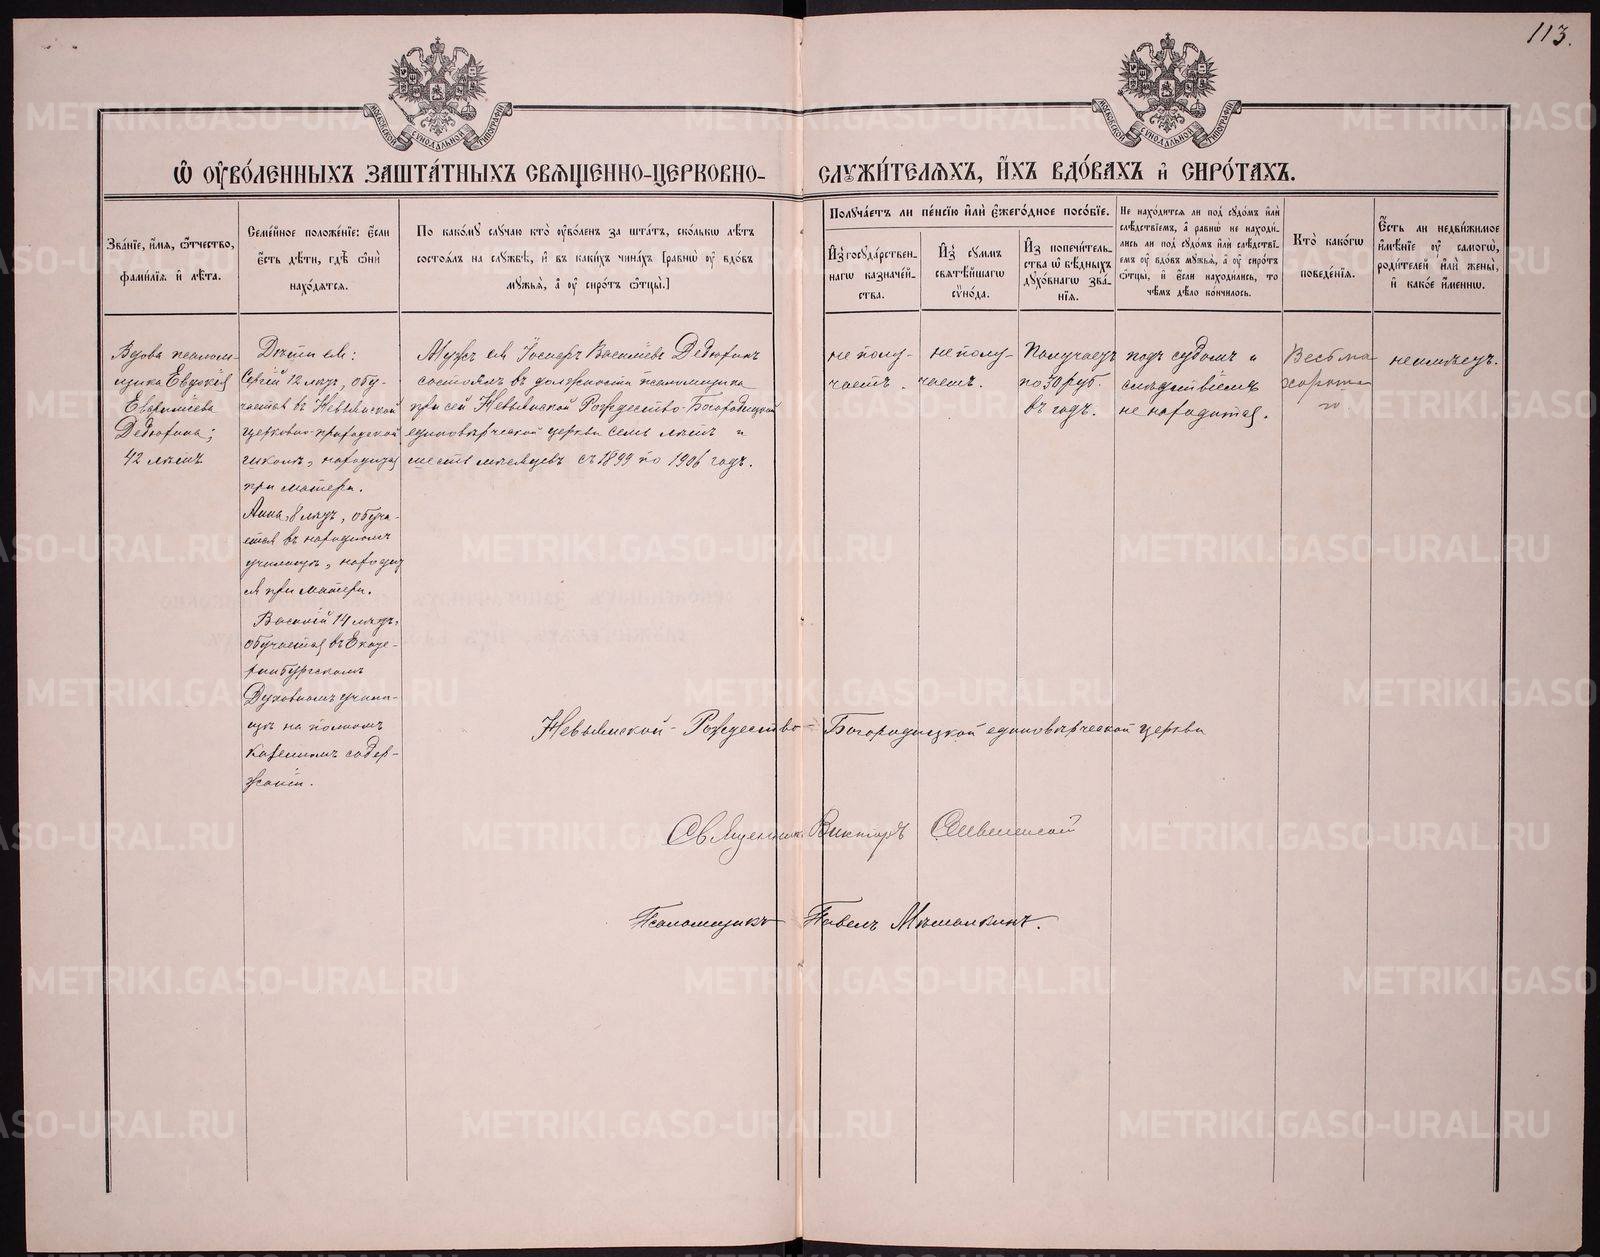 113.
МОСКОВСКОЙ СѴНОДАЛЬНОЙ ТИПОГРАФІИ
МОСКОВСКОЙ СѴНОДАЛЬНОЙ ТИПОГРАФІИ
Ѽ ОУ҆ВО́ЛЕННЫХЪ ЗАШТА́ТНЫХЪ СВѦЩЕННО-ЦЕРКОВНО-
СЛѸЖИ́ТЕЛѦХЪ, И҆́ХЪ ВДО́ВАХЪ И҆ СИРО́ТАХЪ.
Зва́нїе, и҆́мѧ, ѻ҆́тчество,
фами́лїѧ и҆ лѣ́та.
Семе́йное положе́нїе: є҆сли
є҆сть дѣ́ти, гдѣ̀ ѻ҆нѝ
нахо́дѧтсѧ.
По како́мꙋ слꙋ́чаю кто̀ оу҆во́ленъ за шта́тъ, ско́лькѡ лѣ́тъ
состоѧ́лъ на слꙋ́жбѣ, и҆ въ каки́хъ чина́хъ [равнѡ̀ оу҆ вдо́въ
мꙋжьѧ̀, а҆ оу҆ сиро́тъ ѻ҆тцы̀.]
Полꙋча́етъ ли пе́нсїю и҆лѝ є҆жего́дное посо́бїе.
И҆з̾ госꙋда́рствен-
нагѡ казначе́й-
ства.
И҆з̾ сꙋммъ
свѧтѣ́йшагѡ
сѷно́да.
И҆з̾ попечи́тель-
ства ѡ҆ бѣ́дныхъ
дꙋхо́внагѡ зва́-
нїѧ.
Не нахо́дитсѧ ли под̾ сꙋдо́мъ и҆лѝ
слѣ́дствїемъ, а҆ равнѡ̀ не находи́-
лись ли под̾ сꙋдо́мъ и҆лѝ слѣ́дствї-
емъ оу҆ вдо́въ мꙋжьѧ̀, а҆ оу҆ сиро́тъ
ѻ҆тцы̀, и҆ є҆сли находи́лись, то
чѣ́мъ дѣ́ло ко́нчилось.
Кто̀ како́гѡ
поведе́нїѧ.
Є҆сть ли недви́жимое
и҆мѣ́нїе оу҆ самогѡ̀,
роди́телей и҆лѝ жены̀,
и҆ како́е и҆́меннѡ.
Вдова псалом-
щика Евдокія
Евфиміева
Дедюхина;
42 лѣтъ
Дѣти ея:
Сергій 12 лѣтъ, обу-
чается въ Невьянской
церковно-приходской
школѣ, находится
при матери.
Анна, 8 лѣтъ, обуча-
ется въ народномъ
училищѣ, находит
ся при матери.
Василій 14 лѣтъ,
обучается въ Екате-
ринбургскомъ
Духовномъ учили-
щѣ на полномъ
казенномъ содер-
жаніи.
Мужъ ея Іосифъ Васильевъ Дедюхинъ
состоялъ въ должности псаломщика
при сей Невьянской Рождество-Богородицкой
единовѣрческой церкви семь лѣтъ и
шесть мѣсяцевъ съ 1899 по 1906 годъ.
не полу-
чаетъ.
не полу-
чаетъ.
Получаетъ
по 30 руб.
въ годъ.
подъ судомъ и
слѣдствіемъ
не находится.
Весьма
хороша
го
не имѣетъ.
Невьянской-Рождество-Богородицкой единовѣрческой церкви
Священникъ Викторъ
Псаломщикъ Павелъ Мѣшалкинъ.